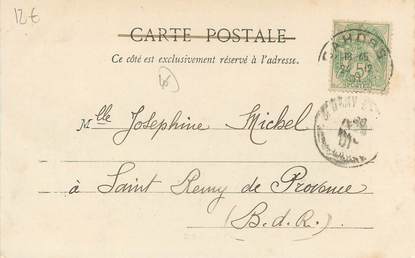 12€
CARTE POSTALE
Ce côté est exclusivement réservé à l'adresse.
CAHORS
Mlle Josephine Michel
à Saint Remy de Provence
(B.d.R.)